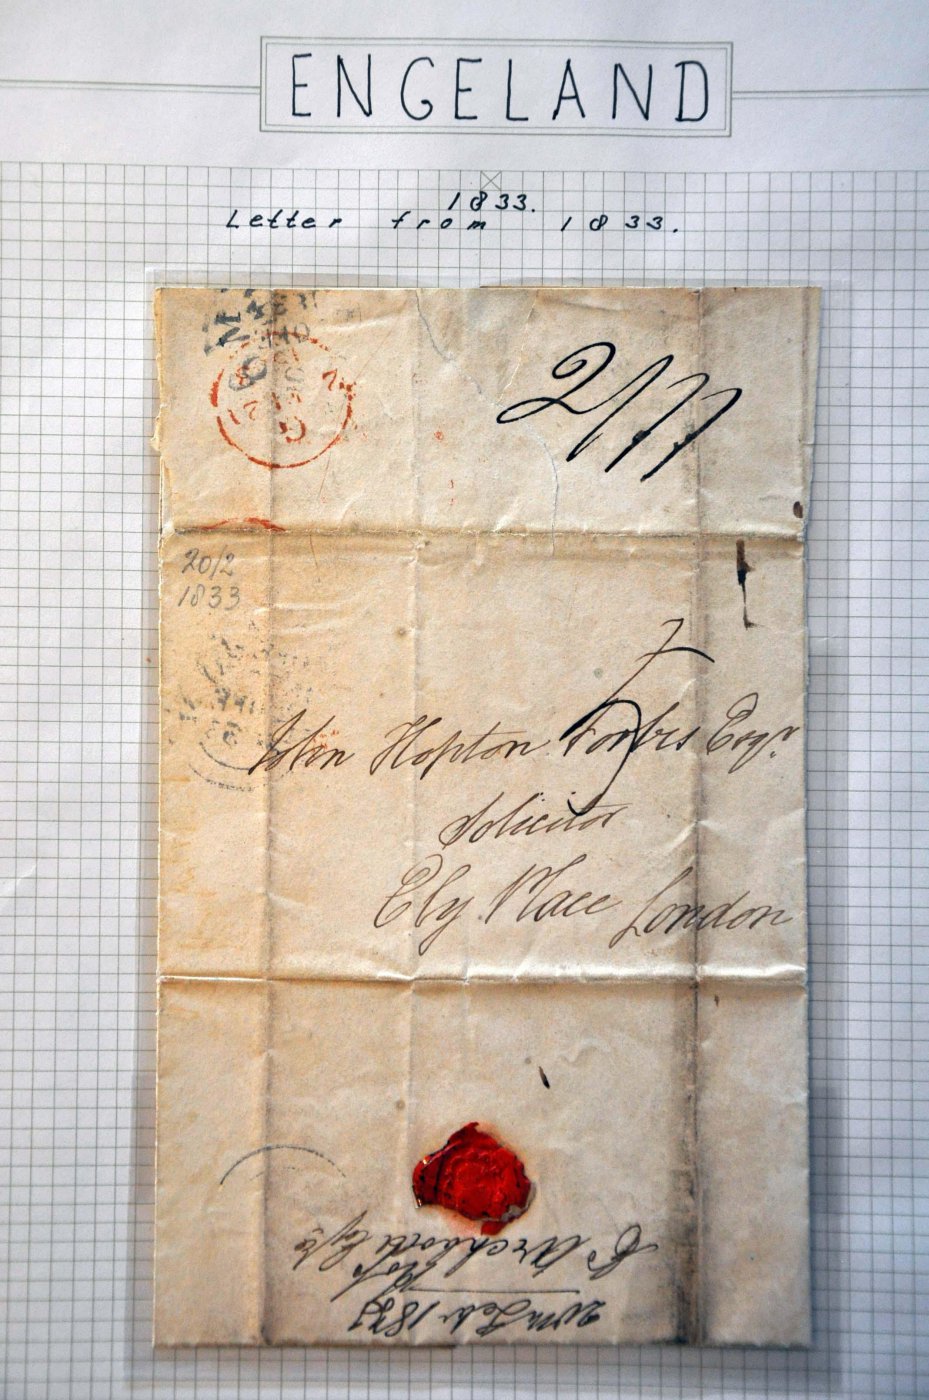 ENGELAND
1833.
Letter from 1833.
2/11
20/2
1833
7
John Hopton Forbes Esqr
Solicitor
Ely Place London
Feb. 1833